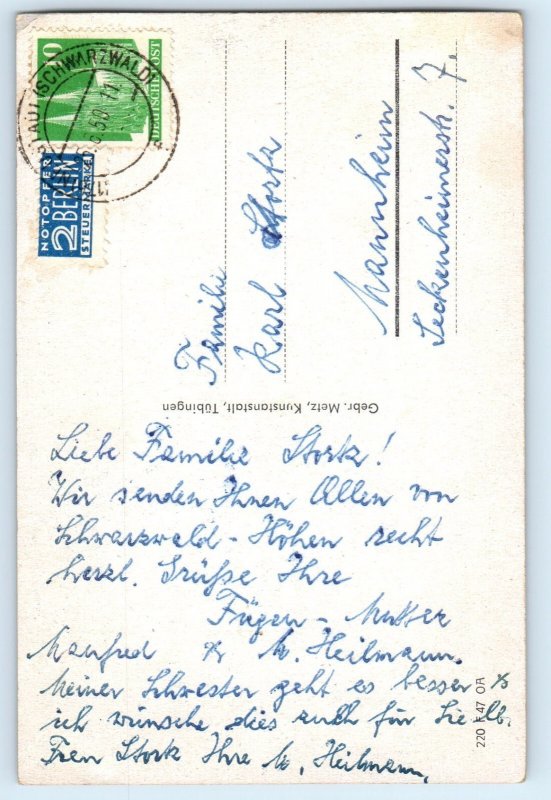 10
DEUTSCHE POST
(SCHWARZWALD)
NOTOPFER
2 BERLIN
STEUERMARKE
Familie
Karl Stortz
Mannheim
Seckenheimerstr. 7.
Gebr. Metz, Kunstanstalt, Tübingen
Liebe Familie Stortz!
Wir senden Ihnen Allen von
Schwarzwald-Höhen recht
herzl. Grüße Ihre
Fügen-Mutter
Manfred & M. Heilmann.
Meiner Schwester geht es besser &
ich wünsche dies auch für Sie lb.
Frau Stork Ihre M. Heilmann,
220 F 47 OA